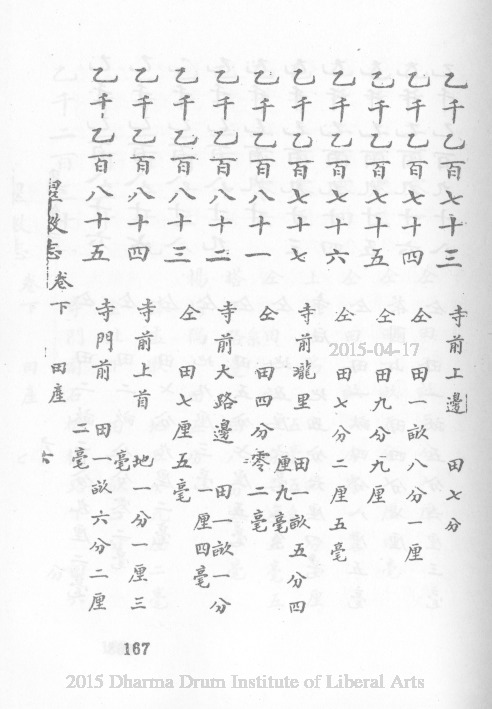 乙千乙百七十三 寺前上邊 田七分
乙千乙百七十四 仝 田 畝八分一厘
乙千乙百七十五 仝 田九分九厘
乙千乙百七十六 仝 田七分二厘五毫
乙千乙百七十七 寺前瓏里 田一畝五分四
厘九毫
乙千乙百八十一 仝 田四分零二毫
乙千乙百八十二 寺前大路邊 田一畝一分
一厘四毫
乙千乙百八十三 仝 田七厘五毫
乙千乙百八十四 寺前上首 地一分一厘三
毫
乙千乙百八十五 寺門前 田一畝六分二厘
二毫
志 卷下 田產 六
167
2015-04-17
2015 Dharma Drum Institute of Liberal Arts